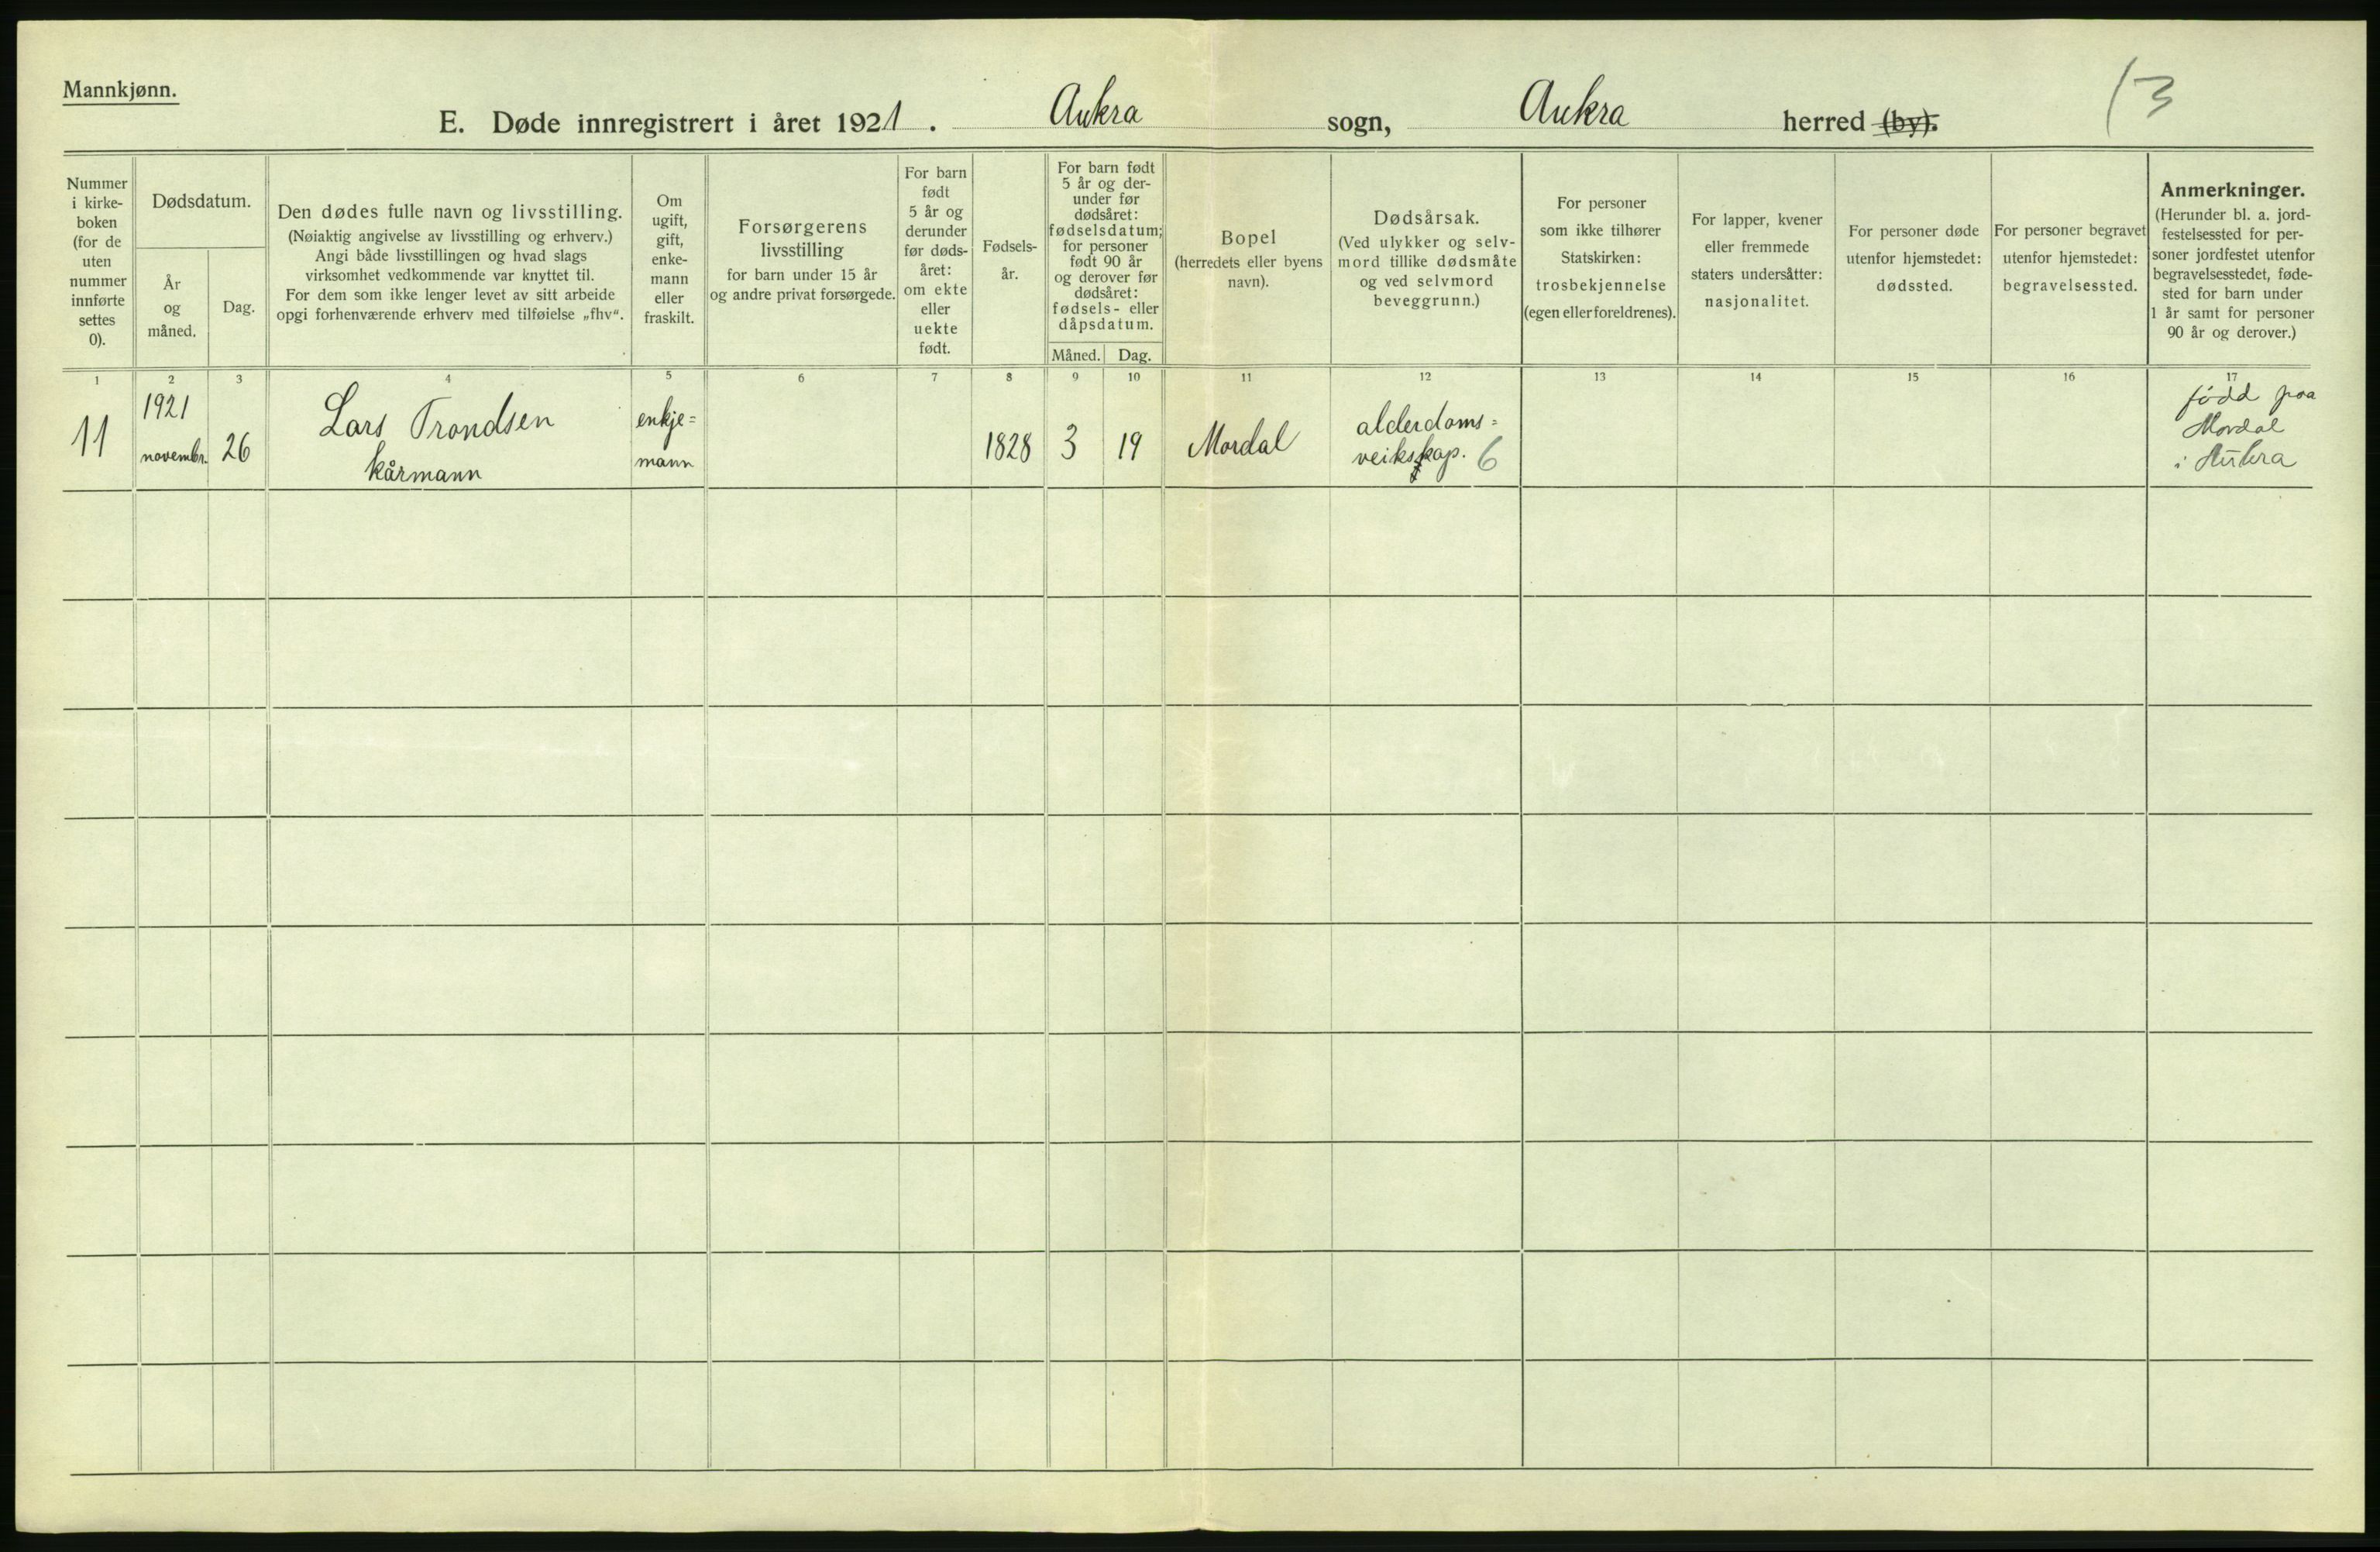 Mannkjønn.
E. Døde innregistrert i året 1921. Aukra sogn, Aukra herred (by).
13
Nummer
i kirke-
boken
(for de
uten
nummer
innførte
settes
0).
Dødsdatum.
År
og
måned.
Dag.
Den dødes fulle navn og livsstilling.
(Nøiaktig angivelse av livsstilling og erhverv.)
Angi både livsstillingen og hvad slags
virksomhet vedkommende var knyttet til.
For dem som ikke lenger levet av sitt arbeide
opgi forhenværende erhverv med tilføielse „fhv“.
Om
ugift,
gift,
enke-
mann
eller
fraskilt.
Forsørgerens
livsstilling
for barn under 15 år
og andre privat forsørgede.
For barn
født
5 år og
derunder
før døds-
året:
om ekte
eller
uekte
født.
Fødsels-
år.
For barn født
5 år og der-
under før
dødsåret:
fødselsdatum;
for personer
født 90 år
og derover før
dødsåret:
fødsels- eller
dåpsdatum.
Måned. Dag.
Bopel
(herredets eller byens
navn).
Dødsårsak.
(Ved ulykker og selv-
mord tillike dødsmåte
og ved selvmord
beveggrunn.)
For personer
som ikke tilhører
Statskirken:
trosbekjennelse
(egen eller foreldrenes).
For lapper, kvener
eller fremmede
staters undersåtter:
nasjonalitet.
For personer døde
utenfor hjemstedet:
dødssted.
For personer begravet
utenfor hjemstedet:
begravelsessted.
Anmerkninger.
(Herunder bl. a. jord-
festelsessted for per-
soner jordfestet utenfor
begravelsesstedet, føde-
sted for barn under
1 år samt for personer
90 år og derover.)
1 2 3 4 5 6 7 8 9 10 11 12 13 14 15 16 17
11
1921
novembr.
26
Lars Trondsen
kårmann
enkje=
mann
1828
3
19
Mordal
alderdoms=
veikskap. 6
född paa
Mordal
i Aukra